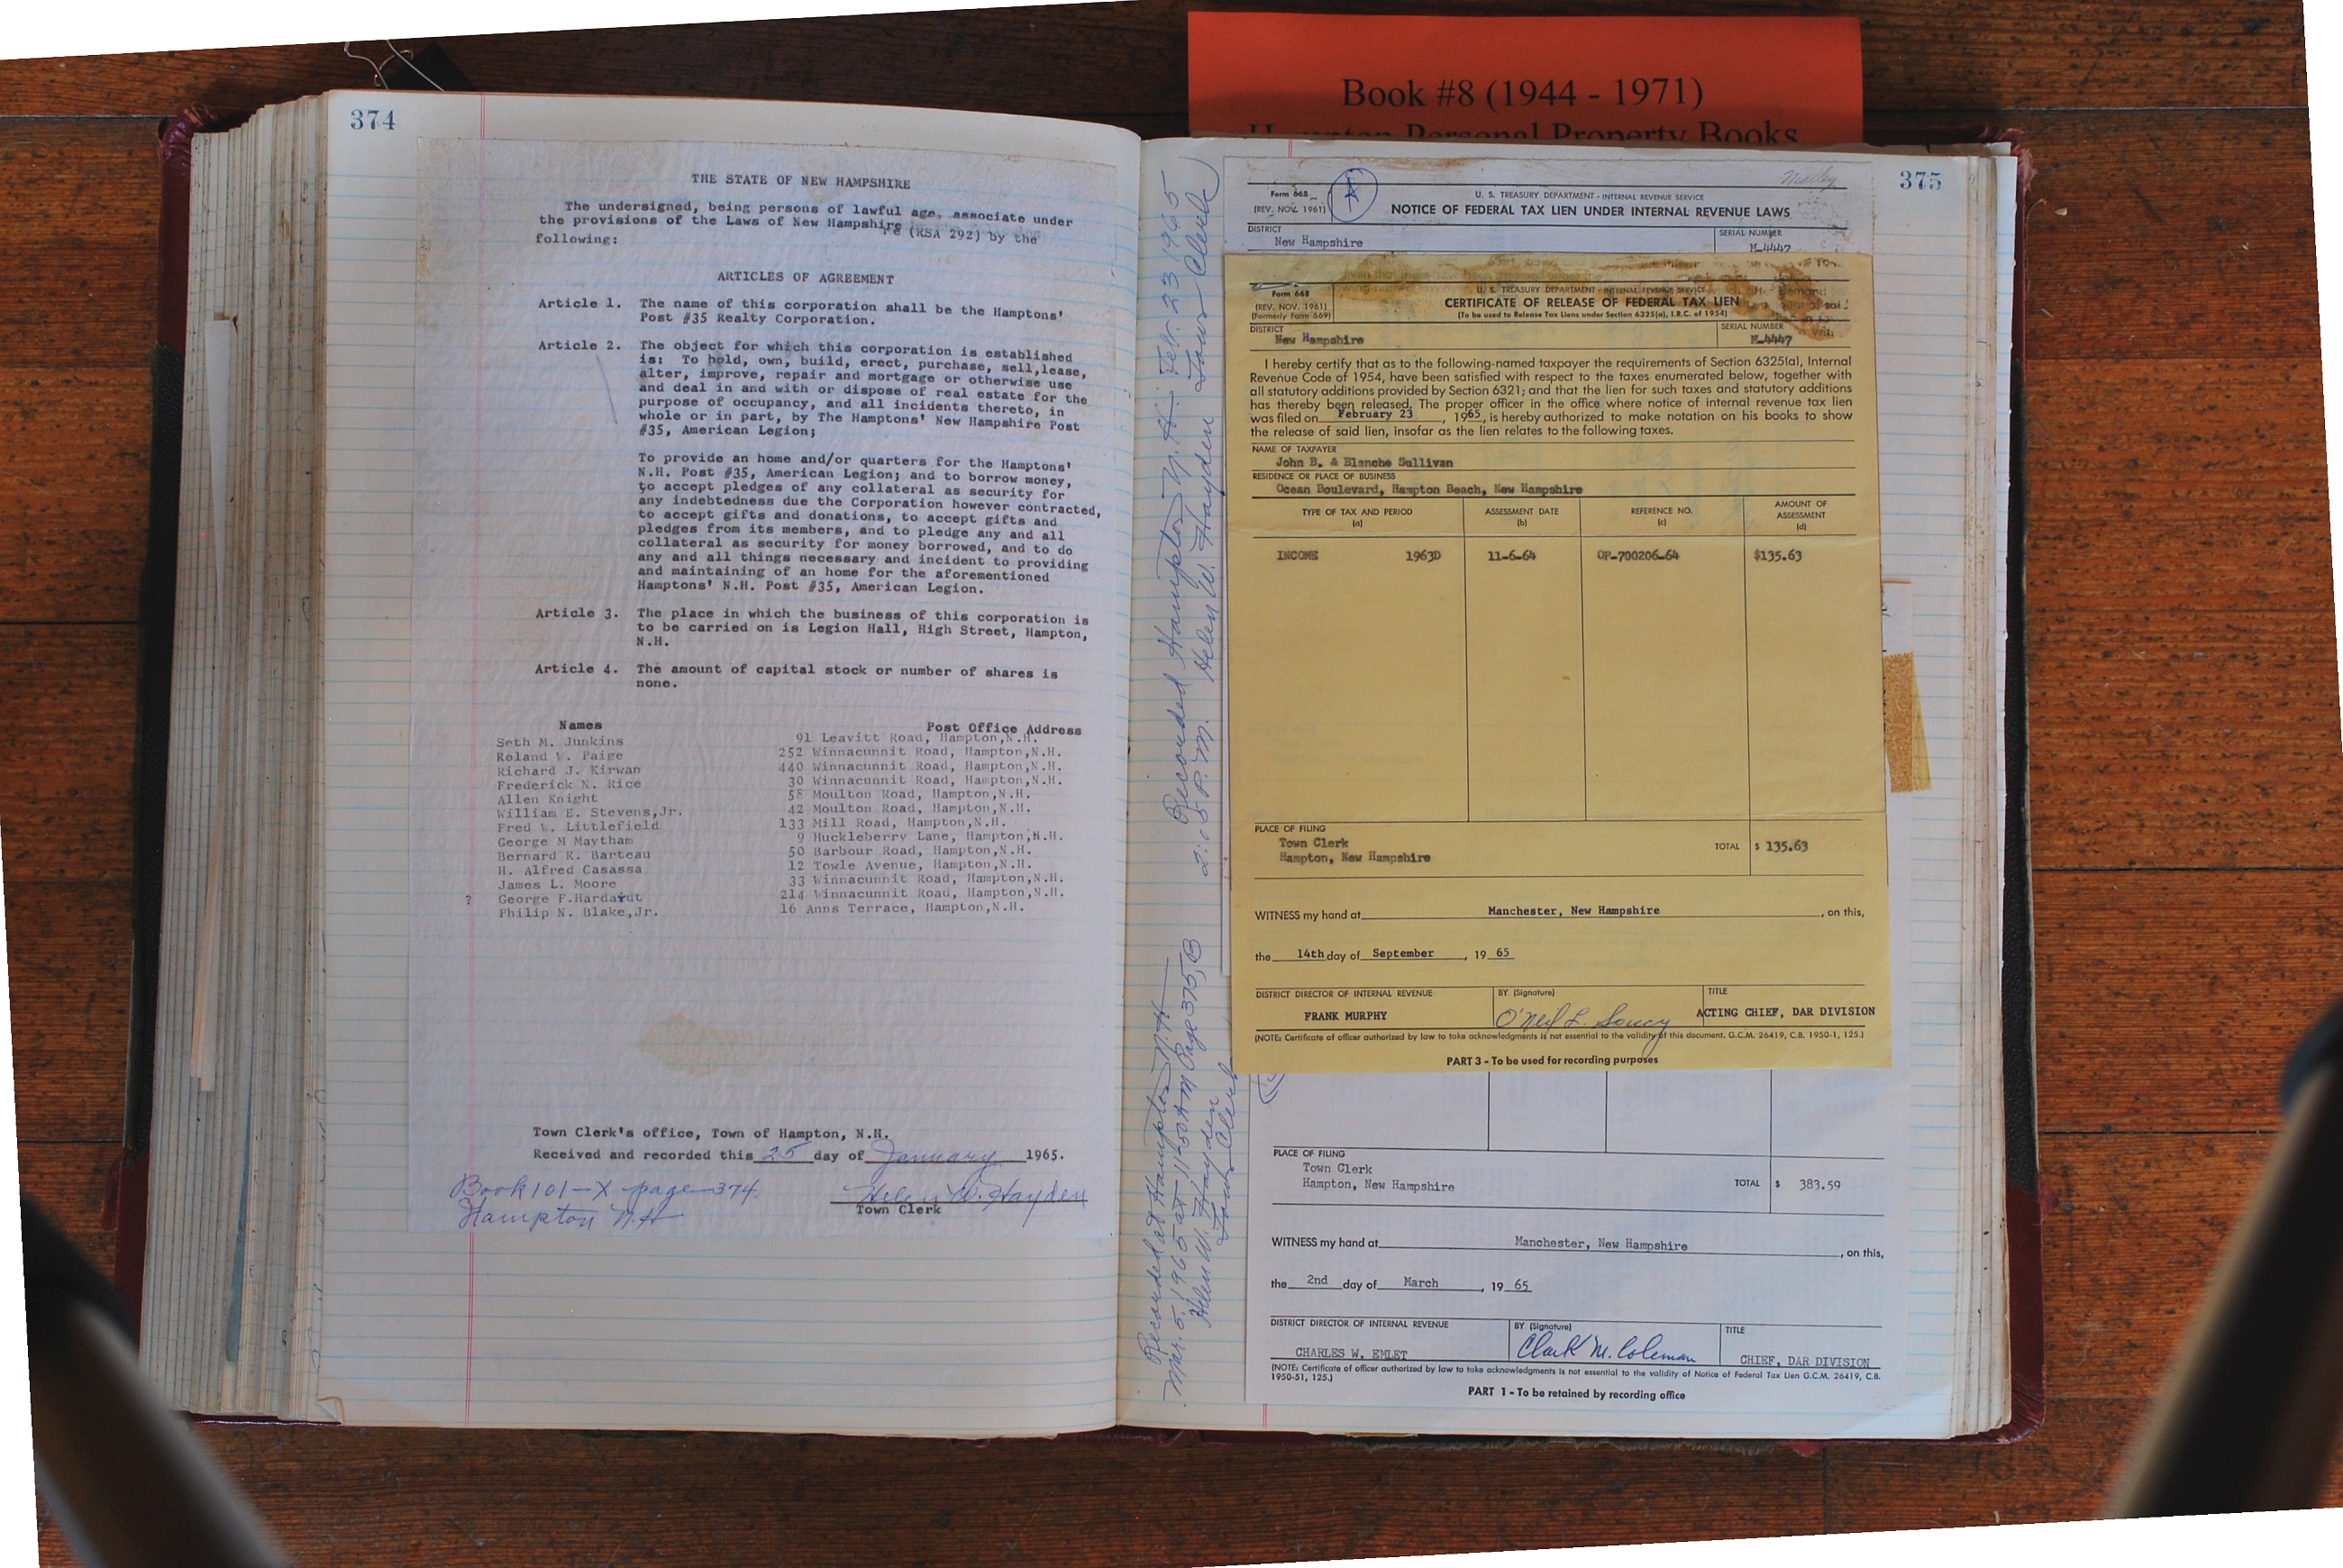 Book #8 (1944 - 1971)
Hampton Personal Property Books
374
THE STATE OF NEW HAMPSHIRE
The undersigned, being persons of lawful age, associate under
the provisions of the Laws of New Hampshire (RSA 292) by the
following:
ARTICLES OF AGREEMENT
Article 1. The name of this corporation shall be the Hamptons'
Post #35 Realty Corporation.
Article 2. The object for which this corporation is established
is: To hold, own, build, erect, purchase, sell,lease,
alter, improve, repair and mortgage or otherwise use
and deal in and with or dispose of real estate for the
purpose of occupancy, and all incidents thereto, in
whole or in part, by The Hamptons' New Hampshire Post
#35, American Legion;
To provide an home and/or quarters for the Hamptons'
N.H. Post #35, American Legion; and to borrow money,
to accept pledges of any collateral as security for
any indebtedness due the Corporation however contracted,
to accept gifts and donations, to accept gifts and
pledges from its members, and to pledge any and all
collateral as security for money borrowed, and to do
any and all things necessary and incident to providing
and maintaining of an home for the aforementioned
Hamptons' N.H. Post #35, American Legion.
Article 3. The place in which the business of this corporation is
to be carried on is Legion Hall, High Street, Hampton,
N.H.
Article 4. The amount of capital stock or number of shares is
none.
Names Post Office Address
Seth M. Junkins 91 Leavitt Road, Hampton,N.H.
Roland W. Paige 252 Winnacunnit Road, Hampton,N.H.
Richard J. Kirwan 440 Winnacunnit Road, Hampton,N.H.
Frederick N. Rice 30 Winnacunnit Road, Hampton,N.H.
Allen Knight 58 Moulton Road, Hampton,N.H.
William E. Stevens,Jr. 42 Moulton Road, Hampton,N.H.
Fred W. Littlefield 133 Mill Road, Hampton,N.H.
George M Maytham 9 Huckleberry Lane, Hampton,N.H.
Bernard R. Barteau 50 Barbour Road, Hampton,N.H.
H. Alfred Casassa 12 Towle Avenue, Hampton,N.H.
James L. Moore 33 Winnacunnit Road, Hampton,N.H.
? George F.Hardardt 214 Winnacunnit Road, Hampton,N.H.
Philip N. Blake,Jr. 16 Anns Terrace, Hampton,N.H.
Town Clerk's office, Town of Hampton, N.H.
Received and recorded this 25 day of January 1965.
Book 101-X page 374
Hampton N.H
Helen W. Hayden
Town Clerk
Recorded Hampton N. H. Feb. 23 1965
2:05 P. M. Helen W. Hayden Town Clerk
Recorded at Hampton N.H
Mar. 5, 1965 at 11:50 AM Page 375, B
Helen W. Hayden
Town Clerk
375
Form 668
(REV. NOV. 1961)
U. S. TREASURY DEPARTMENT - INTERNAL REVENUE SERVICE
NOTICE OF FEDERAL TAX LIEN UNDER INTERNAL REVENUE LAWS
DISTRICT
New Hampshire
SERIAL NUMBER
M-4447
Form 668
(REV. NOV. 1961)
(Formerly Form 669)
U. S. TREASURY DEPARTMENT - INTERNAL REVENUE SERVICE
CERTIFICATE OF RELEASE OF FEDERAL TAX LIEN
(To be used to Release Tax Liens under Section 6325(a), I.R.C. of 1954)
DISTRICT
New Hampshire
SERIAL NUMBER
M-4447
I hereby certify that as to the following-named taxpayer the requirements of Section 6325(a), Internal
Revenue Code of 1954, have been satisfied with respect to the taxes enumerated below, together with
all statutory additions provided by Section 6321; and that the lien for such taxes and statutory additions
has thereby been released. The proper officer in the office where notice of internal revenue tax lien
was filed on February 23, 1965, is hereby authorized to make notation on his books to show
the release of said lien, insofar as the lien relates to the following taxes.
NAME OF TAXPAYER
John B. & Blanche Sullivan
RESIDENCE OR PLACE OF BUSINESS
Ocean Boulevard, Hampton Beach, New Hampshire
TYPE OF TAX AND PERIOD (a) ASSESSMENT DATE (b) REFERENCE NO. (c) AMOUNT OF ASSESSMENT (d)
INCOME 1963D 11-6-64 OP-700206-64 $135.63
PLACE OF FILING
Town Clerk
Hampton, New Hampshire
TOTAL $ 135.63
WITNESS my hand at Manchester, New Hampshire, on this,
the 14th day of September, 19 65
DISTRICT DIRECTOR OF INTERNAL REVENUE BY (Signature) TITLE
FRANK MURPHY O'Neil L. Soucy ACTING CHIEF, DAR DIVISION
(NOTE: Certificate of officer authorized by law to take acknowledgments is not essential to the validity of this document. G.C.M. 26419, C.B. 1950-1, 125.)
PART 3 - To be used for recording purposes
PLACE OF FILING
Town Clerk
Hampton, New Hampshire
TOTAL $ 383.59
WITNESS my hand at Manchester, New Hampshire, on this,
the 2nd day of March, 19 65
DISTRICT DIRECTOR OF INTERNAL REVENUE BY (Signature) TITLE
CHARLES W. EMLET Clark M. Coleman CHIEF, DAR DIVISION
(NOTE: Certificate of officer authorized by law to take acknowledgments is not essential to the validity of Notice of Federal Tax Lien G.C.M. 26419, C.B.
1950-51, 125.)
PART 1 - To be retained by recording office